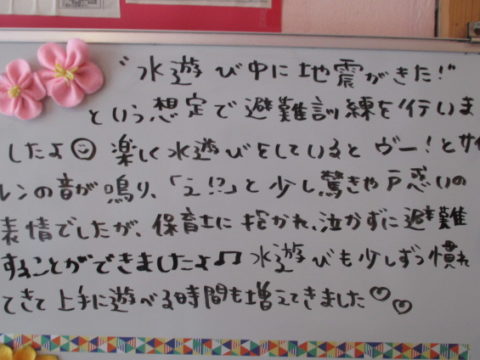 "水遊び中に地震がきた!"
という想定で避難訓練を行いま
したよ☺ 楽しく水遊びをしているとヴー!とサイ
レンの音が鳴り、「え!?」と少し驚きや戸惑いの
表情でしたが、保育士に抱かれ、泣かずに避難
することができましたよ♫ 水遊びも少しずつ慣れ
てきて上手に遊べる時間も増えてきました♡♡